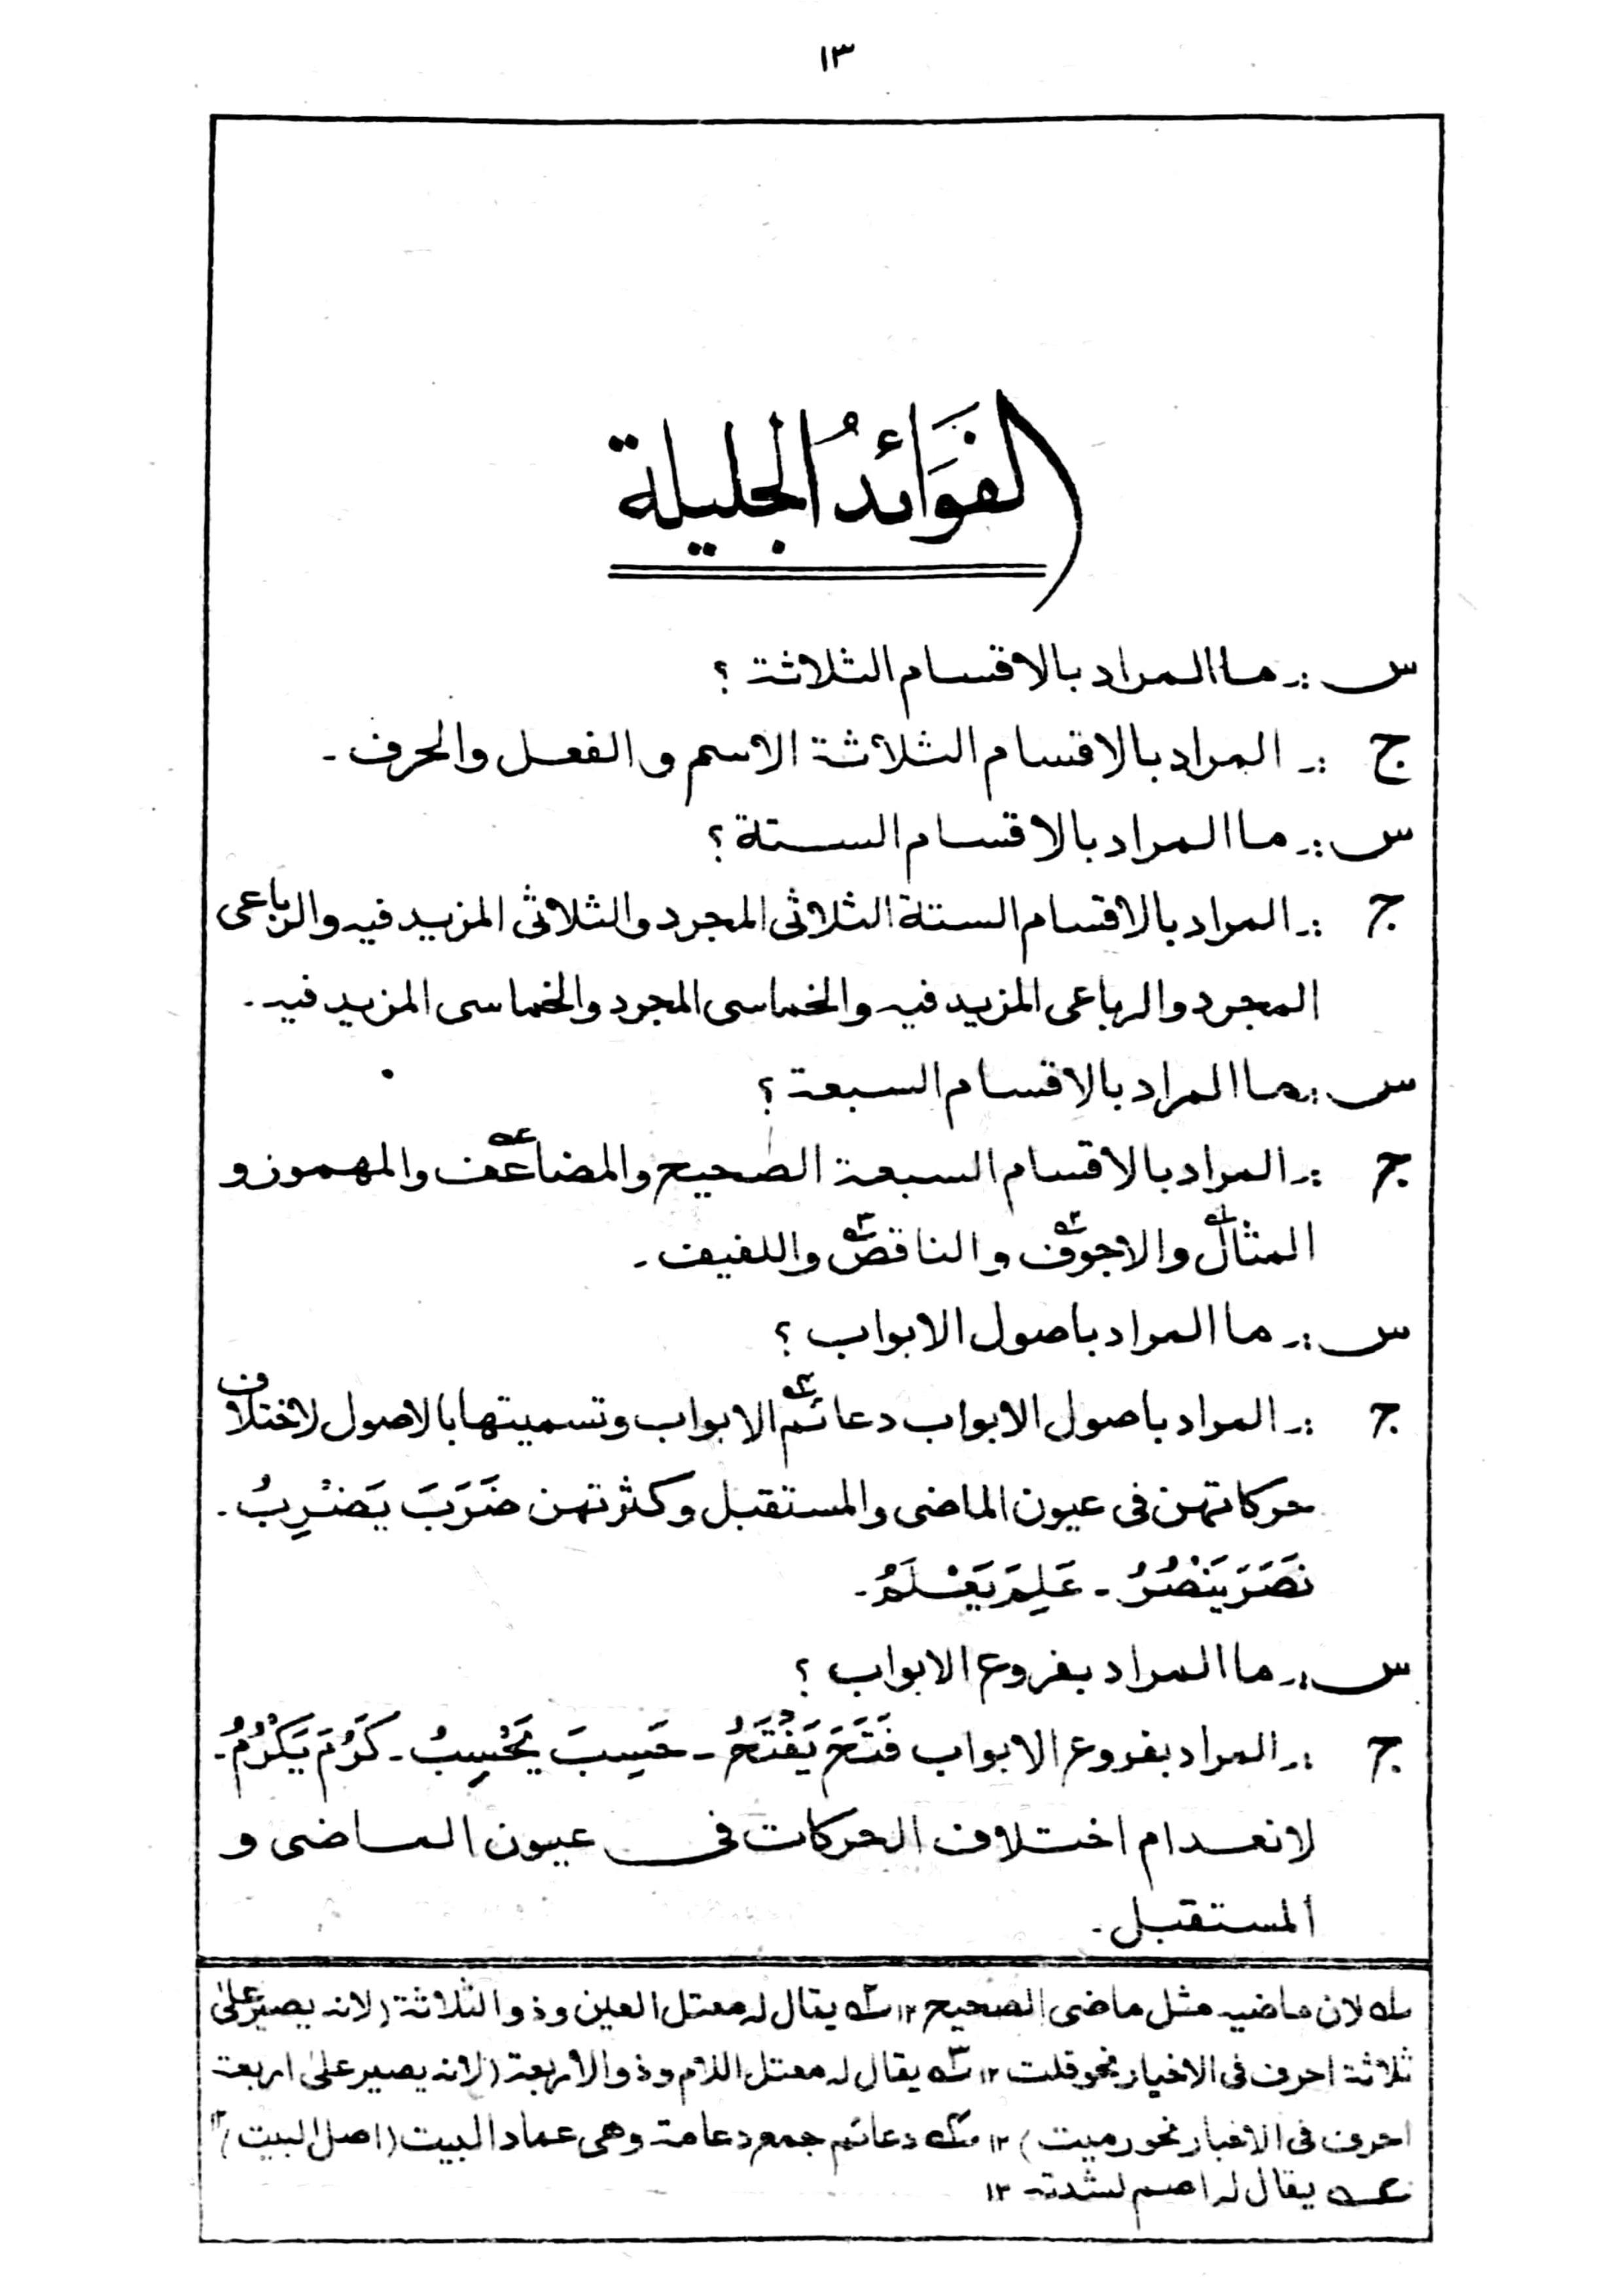 ١٣
الفَوَائدُ الجليلة
س :۔ ما المراد بالاقسام الثلاثة ؟
ج :۔ المراد بالاقسام الثلاثة الاسم و الفعل والحرف ۔
س :۔ ما المراد بالاقسام الستة ؟
ج :۔ المراد بالاقسام الستة الثلاثى المجرد والثلاثى المزيد فيه والرباعى
المجرد والرباعى المزيد فيه والخماسى المجرد والخماسى المزيد فيه ۔
س :۔ ما المراد بالاقسام السبعة ؟
ج :۔ المراد بالاقسام السبعة الصحيح والمضاعف عه والمهموز و
المثال له والاجوف ٢ه والناقص ٣ه واللفيف ۔
س :۔ ما المراد باصول الابواب ؟
ج :۔ المراد باصول الابواب دعائم ٤ه الابواب وتسميتها بالاصول لاختلاف
حركاتهن فى عيون الماضى والمستقبل وكثرتهن ضَرَبَ يَضْرِبُ ۔
نَصَرَ يَنْصُرُ ۔ عَلِمَ يَعْلَمُ ۔
س :۔ ما المراد بفروع الابواب ؟
ج :۔ المراد بفروع الابواب فَتَحَ يَفْتَحُ ۔ حَسِبَ يَحْسِبُ ۔ كَرُمَ يَكْرُمُ ۔
لانعدام اختلاف الحركات فى عيون الماضى و
المستقبل ۔
له لان ماضيه مثل ماضى الصحيح ١٢ ٢ه يقال له معتل العين وذو الثلاثة (لانه يصير على
ثلاثة احرف فى الاخبار نحو قلت ١٢ ٣ه يقال له معتل اللام وذو الاربعة (لانه يصير على اربعة
احرف فى الاخبار نحو رميت) ١٢ ٤ه دعائم جمع دعامة وهى عماد البيت (اصل البيت) ١٢
عه يقال له اصم لشدته ١٢